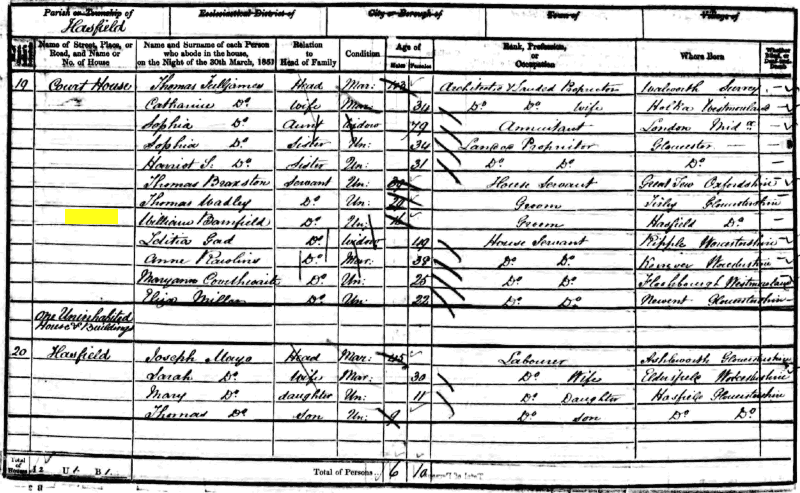 Parish or Township of Ecclesiastical District of City or Borough of Town of Village of
Hasfield
Name of Street, Place, or Road, and Name or No. of House
Name and Surname of each Person who abode in the house, on the Night of the 30th March, 1851
Relation to Head of Family
Condition
Age of
Males Females
Rank, Profession, or Occupation
Where Born
Whether Blind, or Deaf-and-Dumb
19 Court House Thomas Fulljames Head Mar: 43 Architect & Landed Proprietor Walworth Surrey
Catharine Do Wife Mar: 34 Do Do Wife Westmorland
Sophia Do Aunt Widow 79 Annuitant London Midx
Sophia Do Sister Un: 34 Landed Proprietor Gloucester
Harriot S. Do Sister Un: 31 Do Do Do
Thomas Braxston Servant Un: House Servant Great Tew Oxfordshire
Thomas Wadley Do Un: Groom Tirley Gloucestershire
William Bamfield Do Un: Groom Hasfield Do
Letitia Gad Do Widow 49 House Servant Ripple Worcestershire
Anne Rawlins Do Mar: 38 Do Do
Maryann Do Un: 25 Do Do Westmorland
Eliza Miller Do Un: 22 Do Do Newent Gloucestershire
One Uninhabited
House & Buildings
20 Hasfield Joseph Mayo Head Mar: 45 Labourer Ashleworth Gloucestershire
Sarah Do Wife Mar: 30 Do Wife Eldersfield Worcestershire
Mary Do daughter Un: 11 Do Daughter Hasfield Gloucestershire
Thomas Do Son Un: 9 Do son Do Do
Total of Houses I 2 U 1 B 1 Total of Persons 6 10